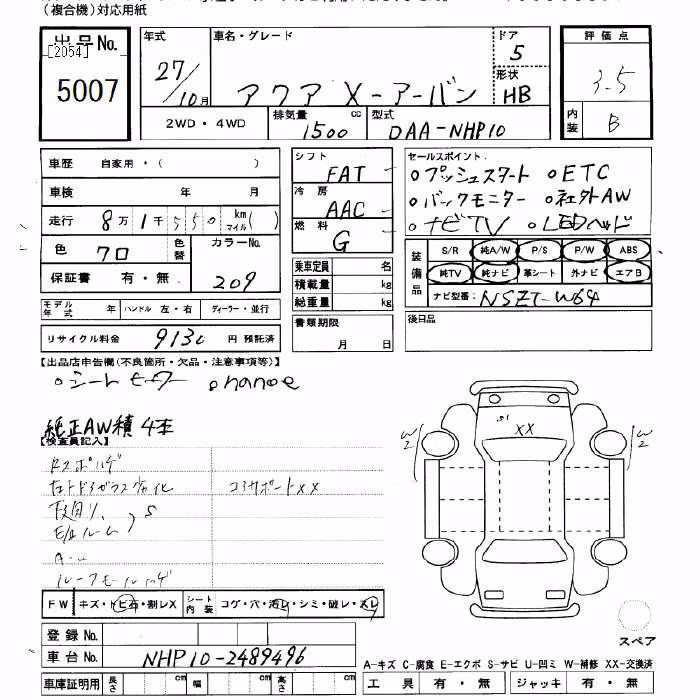 (複合機)対応用紙
出品No. 年式 車名・グレード ドア 評価点
[2054]
5007 27/10月 アクア X-アーバン 5 3.5
形状 HB
2WD・4WD 排気量 1500 cc 型式 DAA-NHP10 内装 B
車歴 自家用・( )
車検 年 月
走行 8万1千550 km マイル( )
色 クロ 色替 カラーNo. 209
保証書 有・無
モデル年式 年 ハンドル 左・右 ディーラー・並行
リサイクル料金 9130 円 預託済
シフト FAT
冷房 AAC
燃料 G
乗車定員 名
積載量 kg
総重量 kg
書類期限 月 日
セールスポイント.
○プッシュスタート ○ETC
○バックモニター ○社外AW
○ナビTV ○LEDヘッド
装備品 S/R 純A/W P/S P/W ABS
純TV 純ナビ 革シート 外ナビ エアB
ナビ型番: NSZT-W64
後日品
【出品店申告欄(不良箇所・欠品・注意事項等)】
○シートヒーター ○nanoe
純正AW積 4本
【検査員記入】
コアサポートXX
S
ルーフモール
S1 XX
W2 W2
FW キズ・トビ石・割レX シート内装 コゲ・穴・汚レ・シミ・破レ・スレ
登録No.
車台No. NHP10-2489496
車庫証明用 長さ cm 幅 cm 高さ cm
スペア
A-キズ C-腐食 E-エクボ S-サビ U-凹ミ W-補修 XX-交換済
工具 有・無 ジャッキ 有・無